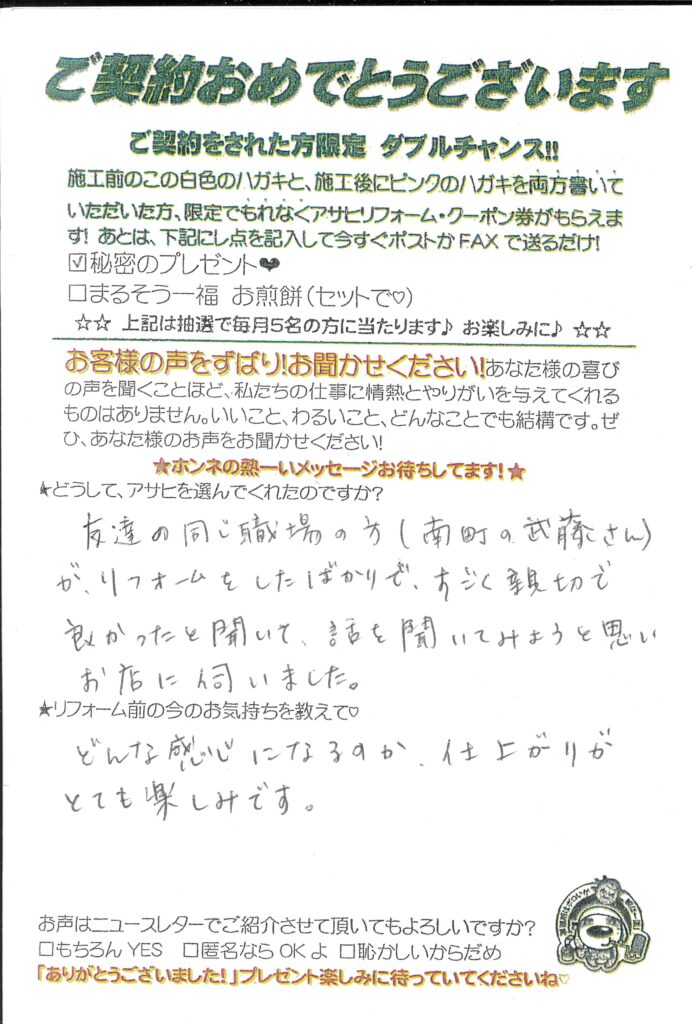 ご契約おめでとうございます
ご契約をされた方限定 ダブルチャンス!!
施工前のこの白色のハガキと、施工後にピンクのハガキを両方書いて
いただいた方、限定でもれなくアサヒリフォーム・クーポン券がもらえま
す! あとは、下記にレ点を記入して今すぐポストかFAXで送るだけ!
☑秘密のプレゼント❤
□まるそう一福 お煎餅(セットで♡)
☆☆ 上記は抽選で毎月5名の方に当たります♪ お楽しみに♪ ☆☆
お客様の声をずばり!お聞かせください!あなた様の喜び
の声を聞くことほど、私たちの仕事に情熱とやりがいを与えてくれる
ものはありません。いいこと、わるいこと、どんなことでも結構です。ぜ
ひ、あなた様のお声をお聞かせください!
★ホンネの熱ーいメッセージお待ちしてます!★
★どうして、アサヒを選んでくれたのですか?
友達の同じ職場の方(南町の武藤さん)
が、リフォームをしたばかりで、すごく親切で
良かったと聞いて、話を聞いてみようと思い
お店に伺いました。
★リフォーム前の今のお気持ちを教えて♡
どんな感じになるのか、仕上がりが
とても楽しみです。
お声はニュースレターでご紹介させて頂いてもよろしいですか?
□もちろんYES □匿名ならOKよ □恥かしいからだめ
「ありがとうございました!」プレゼント楽しみに待っていてくださいね♡